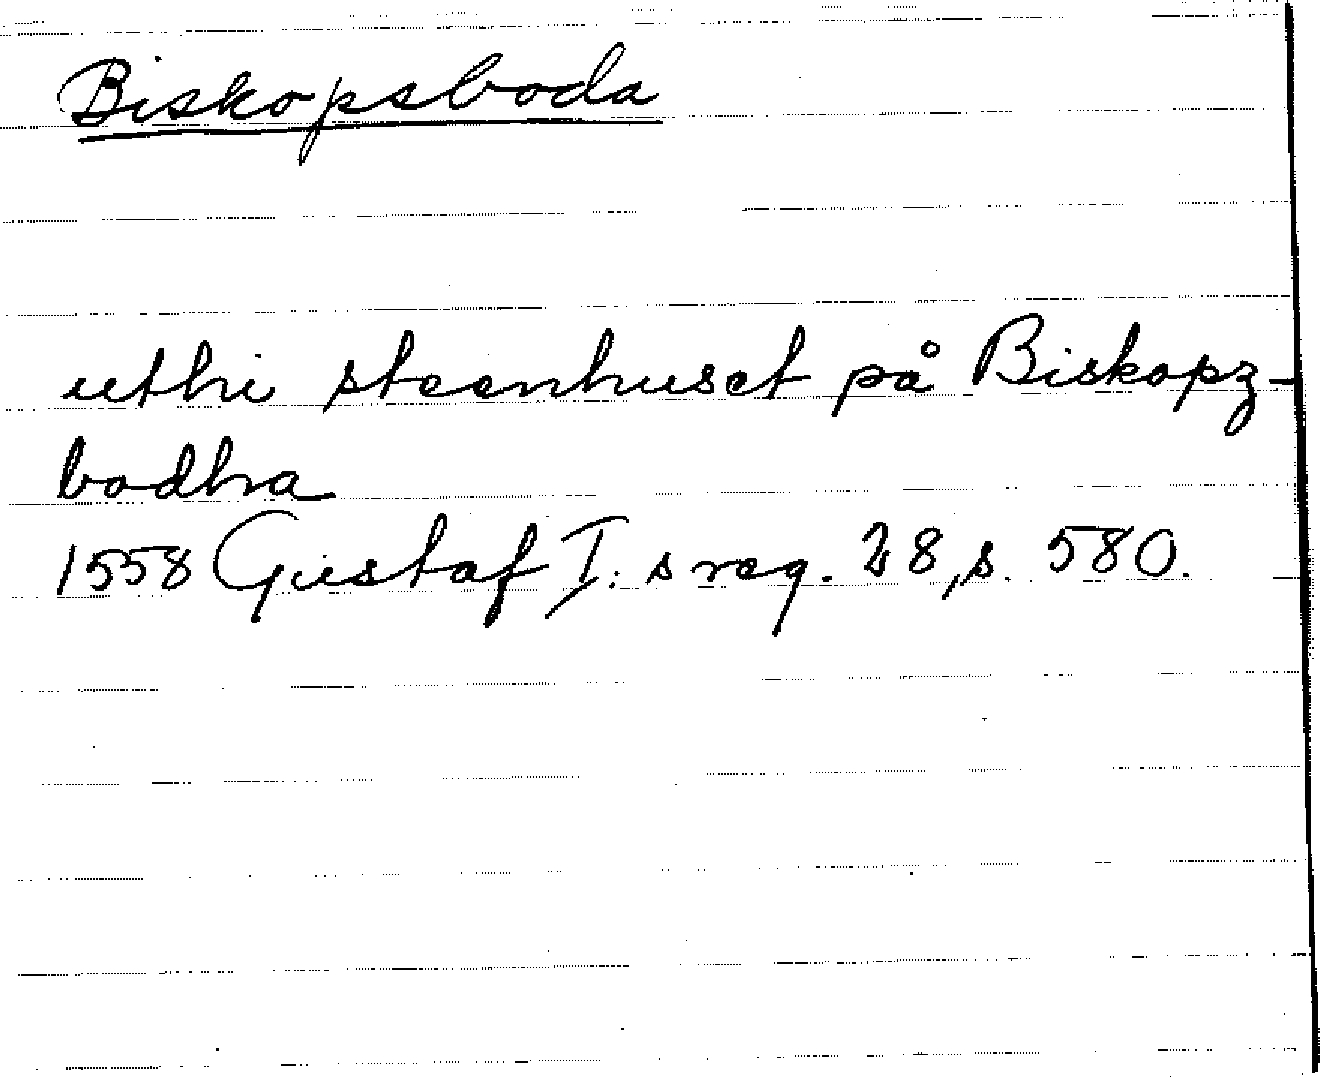 Biskopsboda
uthi steenhuset på Biskopz-
bodha
1558 Gustaf I:s reg. 28, s. 580.